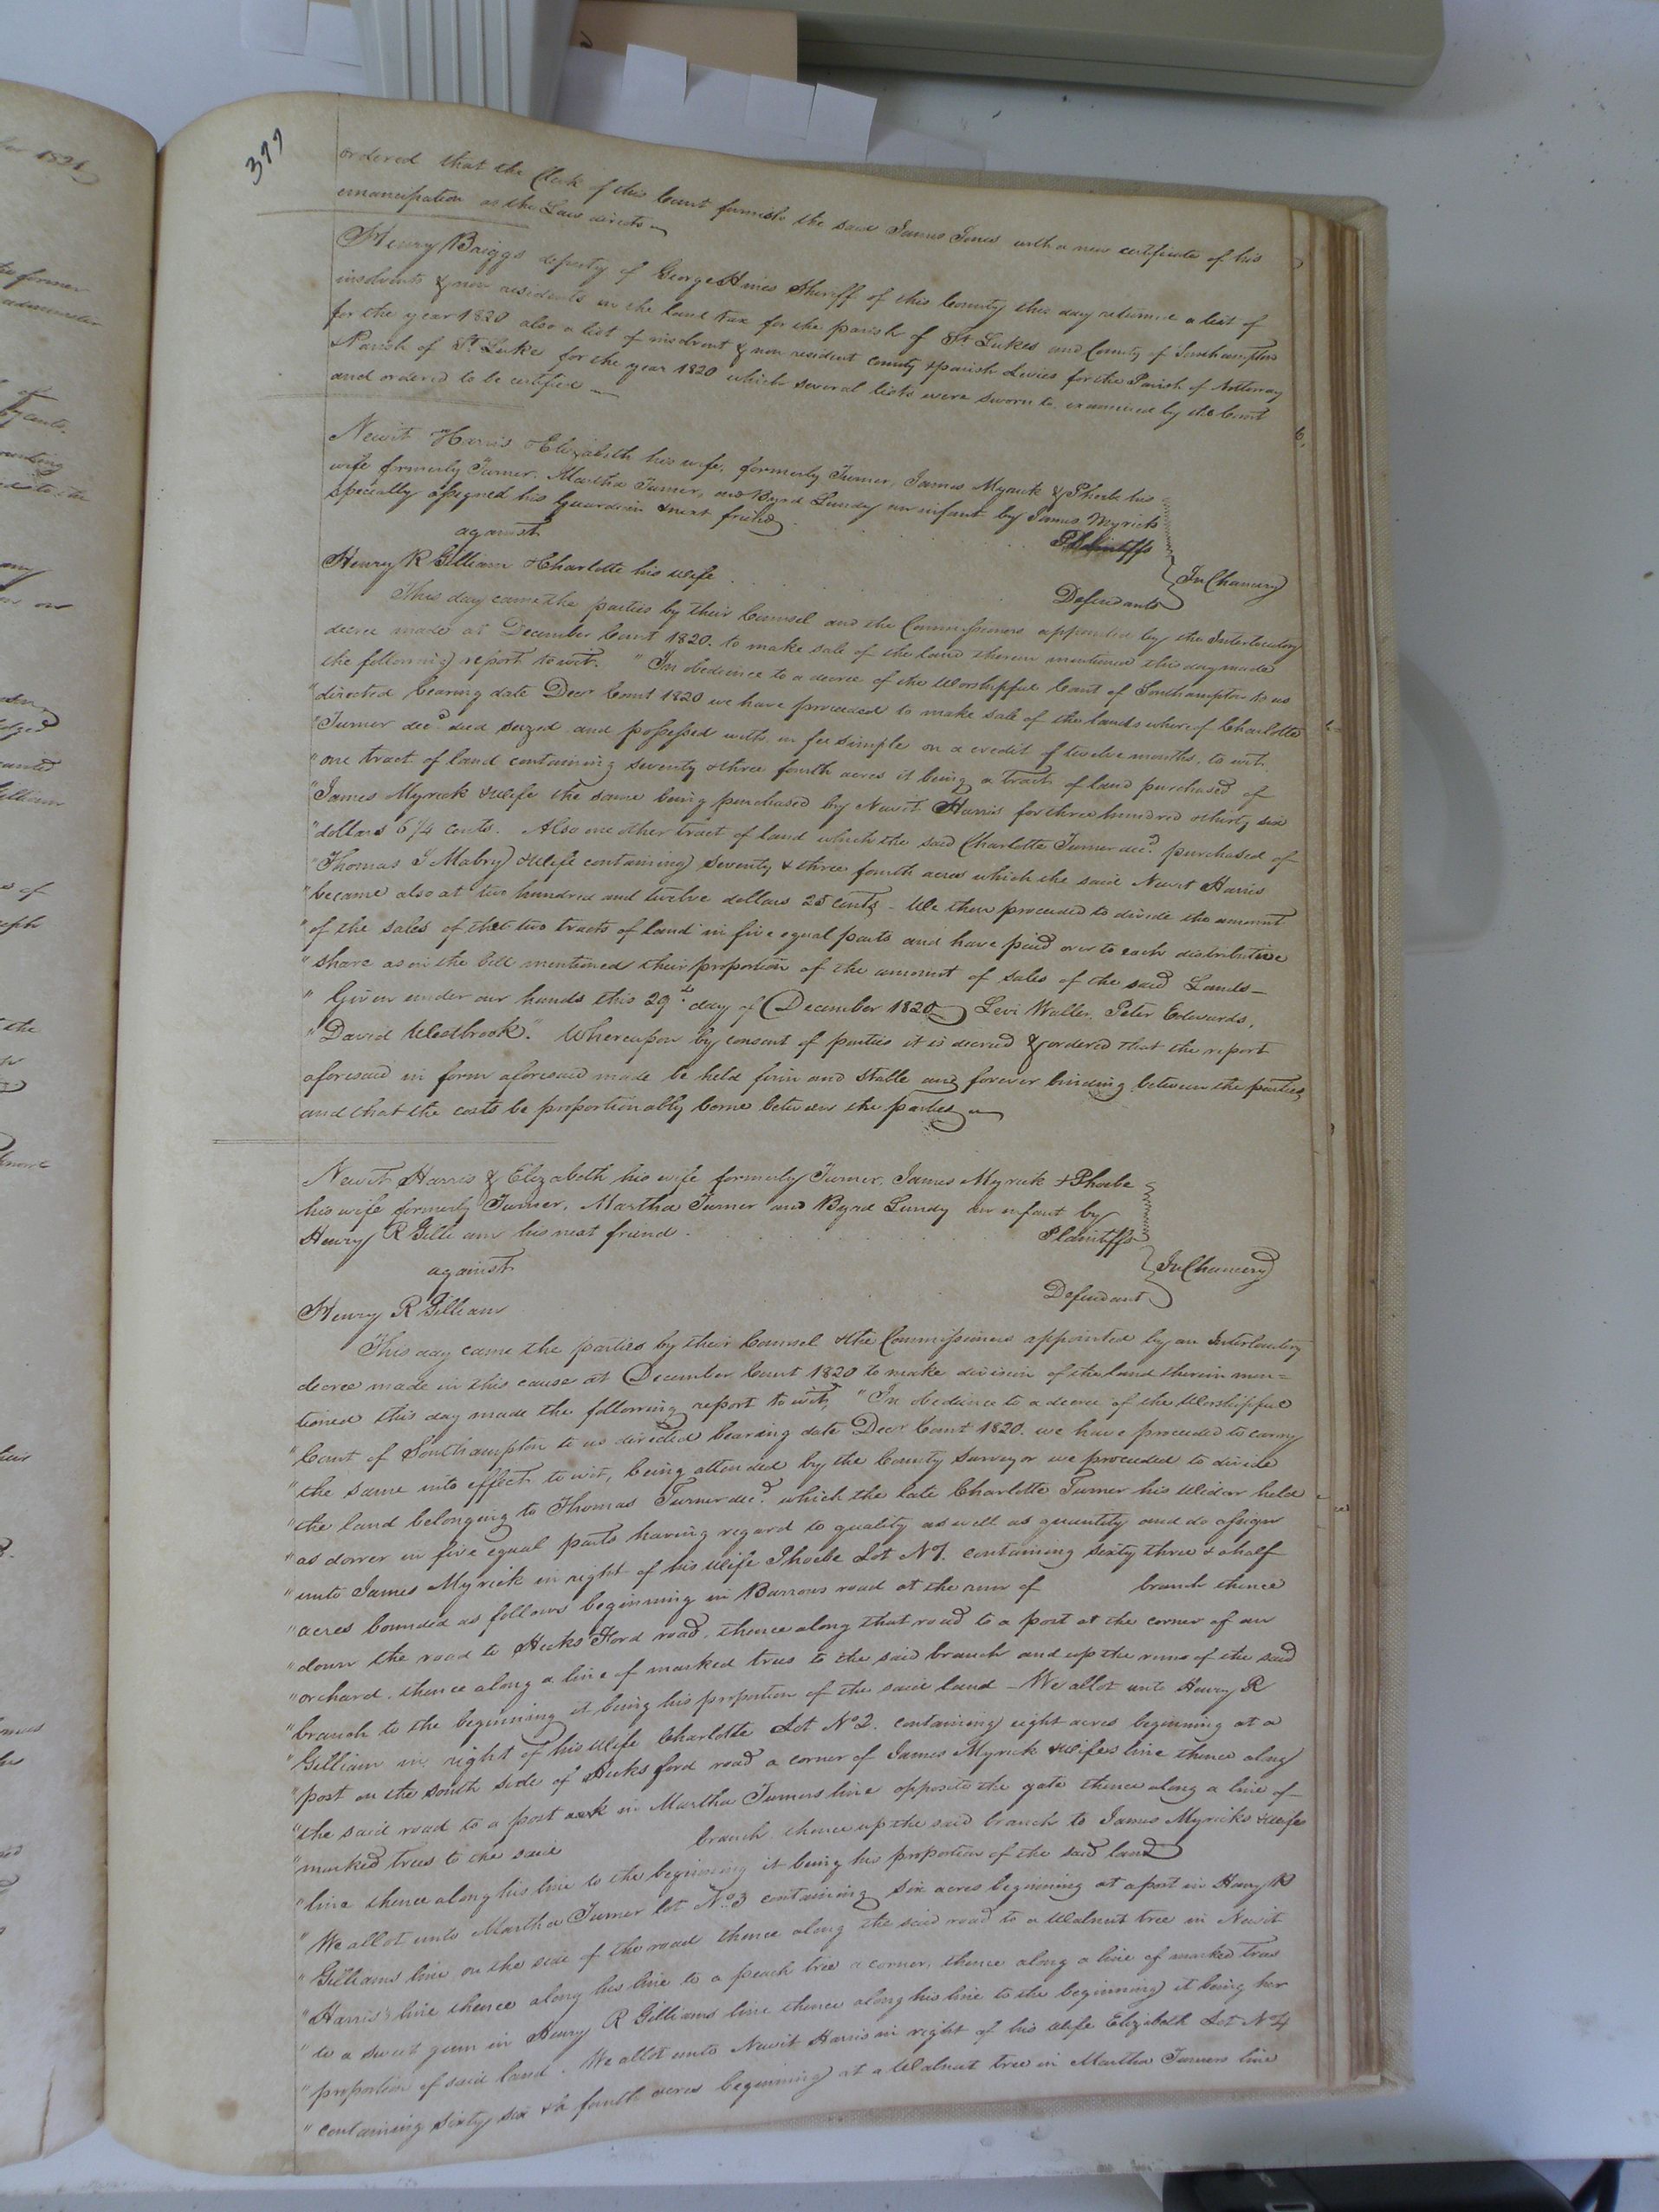 377
ordered that the Clerk of this Court furnish the said James Jones with a new certificate of his
emancipation as the Law directs
Henry Briggs deputy of George Haines Sheriff of this County this day returned a list of
insolvents & non residents in the land tax for the parish of St. Lukes and County of Southampton
for the year 1820 also a list of insolvent & non resident County & parish Levies for the Parish of Nottoway
Parish of St. Luke for the year 1820 which several lists were sworn to, examined by the Court
and ordered to be certified
Newit Harris & Elizabeth his wife, formerly Turner, James Myrick & Phoebe his
wife formerly Turner, Martha Turner, and Byrd Lundy an infant by James Myrick
specially assigned his Guardian & next friend
Plaintiffs
against
In Chancery
Henry R Gilliam & Charlotte his wife
Defendants
This day came the parties by their Counsel and the Commissioners appointed by the Interlocutory
decree made at December Court 1820. to make sale of the land therein mentioned this day made
the following report to wit. "In obedience to a decree of the Worshipful Court of Southampton to us
"directed bearing date Decr. Court 1820 we have proceeded to make sale of the lands whereof Charlotte
"Turner decd. died seized and possessed with in fee simple on a credit of twelve months, to wit,
"one tract of land containing seventy & three fourth acres it being a tract of land purchased of
"James Myrick & wife the same being purchased by Newit Harris for three hundred & thirty six
"dollars 6 1/4 cents. Also one other tract of land which the said Charlotte Turner decd. purchased of
"Thomas J Mabry & wife containing seventy & three fourth acres which the said Newit Harris
"became also at two hundred and twelve dollars 25 cents - We then proceeded to divide the amount
"of the sales of the two tracts of land in five equal parts and have paid over to each distributive
"share as in the bill mentioned their proportion of the amount of sales of the said Lands -
"Given under our hands this 29th. day of December 1820 Levi Waller, Peter Edwards,
"David Westbrook." Whereupon by consent of parties it is decreed & ordered that the report
aforesaid in form aforesaid made be held firm and stable and forever binding between the parties
and that the costs be proportionably borne between the parties
Newit Harris & Elizabeth his wife formerly Turner, James Myrick & Phoebe
his wife formerly Turner, Martha Turner and Byrd Lundy an infant by
Henry R Gilliam his next friend
Plaintiffs
against
In Chancery
Henry R Gilliam
Defendant
This day came the parties by their Counsel & the Commissioners appointed by an Interlocutory
decree made in this cause at December Court 1820 to make division of the land therein men=
tioned this day made the following report to wit, "In obedience to a decree of the Worshipful
"Court of Southampton to us directed bearing date Decr Court 1820. we have proceeded to carry
"the same into effect to wit, being attended by the County Surveyor we proceeded to divide
"the land belonging to Thomas Turner decd. which the late Charlotte Turner his Widow held
"as dower in five equal parts having regard to quality as well as quantity and do assign
"unto James Myrick in right of his Wife Phoebe Lot No 1. containing sixty three & a half
"acres bounded as follows beginning in Barrows road at the run of branch thence
"down the road to Hicks Ford road, thence along that road to a post at the corner of an
"orchard, thence along a line of marked trees to the said branch and up the run of the said
"branch to the beginning it being his proportion of the said land - We allot unto Henry R
"Gilliam in right of his Wife Charlotte Lot No 2. containing eight acres beginning at a
"post on the south side of Hicks ford road a corner of James Myrick & wifes line thence along
"the said road to a post in Martha Turners line opposite the gate thence along a line of
"marked trees to the said branch thence up the said branch to James Myricks & wifes
"line thence along his line to the beginning it being his proportion of the said land
"We allot unto Martha Turner lot No 3 containing six acres beginning at a post in Henry R
"Gilliams line on the side of the road thence along the said road to a Walnut tree in Newit
"Harris's line thence along his line to a peach tree a corner, thence along a line of marked trees
"to a sweet gum in Henry R Gilliams line thence along his line to the beginning it being her
"proportion of said land. We allot unto Newit Harris in right of his Wife Elizabeth Lot No 4
"containing sixty six & a fourth acres beginning at a Walnut tree in Martha Turners line